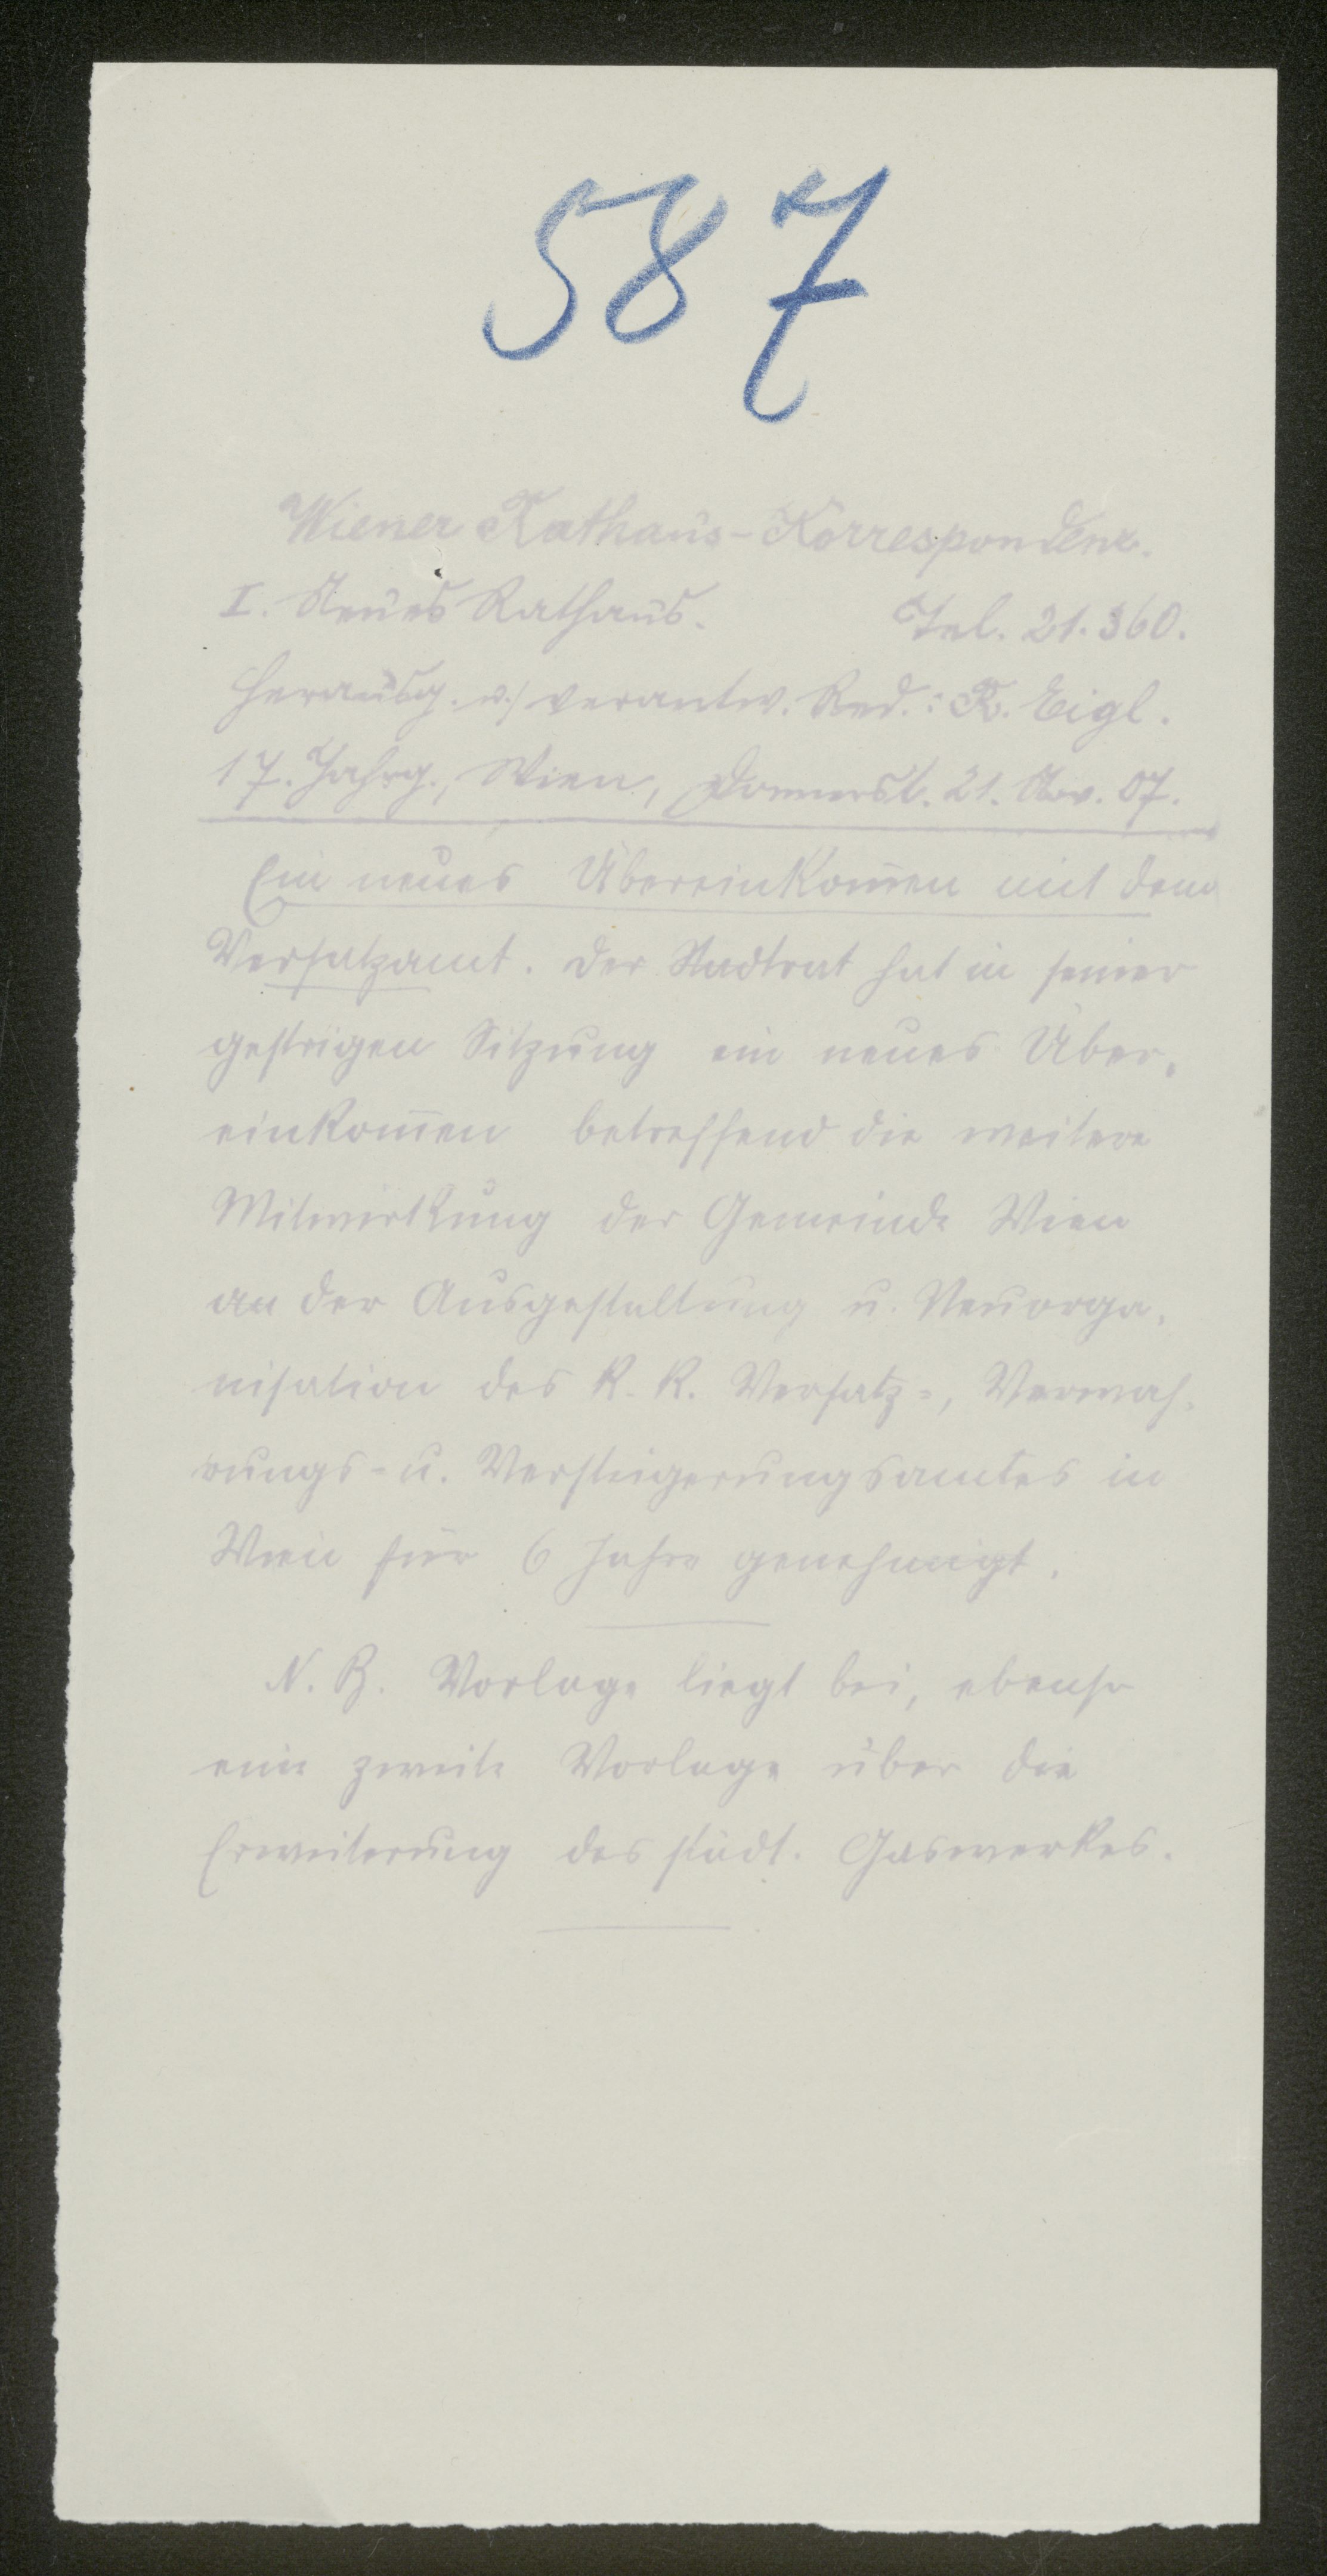 587
Wiener Rathaus-Korrespondenz.
I. Neues Rathaus. Tel. 21.360.
Herausg. u. verantw. Red.: R. Eigl.
17. Jahrg., Wien, Donnerst. 21. Nov. 07.
Ein neues Übereinkom̄en mit dem
Versatzamt. Der Stadtrat hat in seiner
gestrigen Sitzung ein neues Über-
einkom̄en betreffend die weitere
Mitwirkung der Gemeinde Wien
an der Ausgestaltung u. Neuorga-
nisation des k. k. Versatz-, Verwah-
rungs- u. Versteigerungsamtes in
Wien für 6 Jahre genehmigt.
N. B. Vorlage liegt bei, ebenso
eine zweite Vorlage über die
Erweiterung des städt. Gaswerkes.